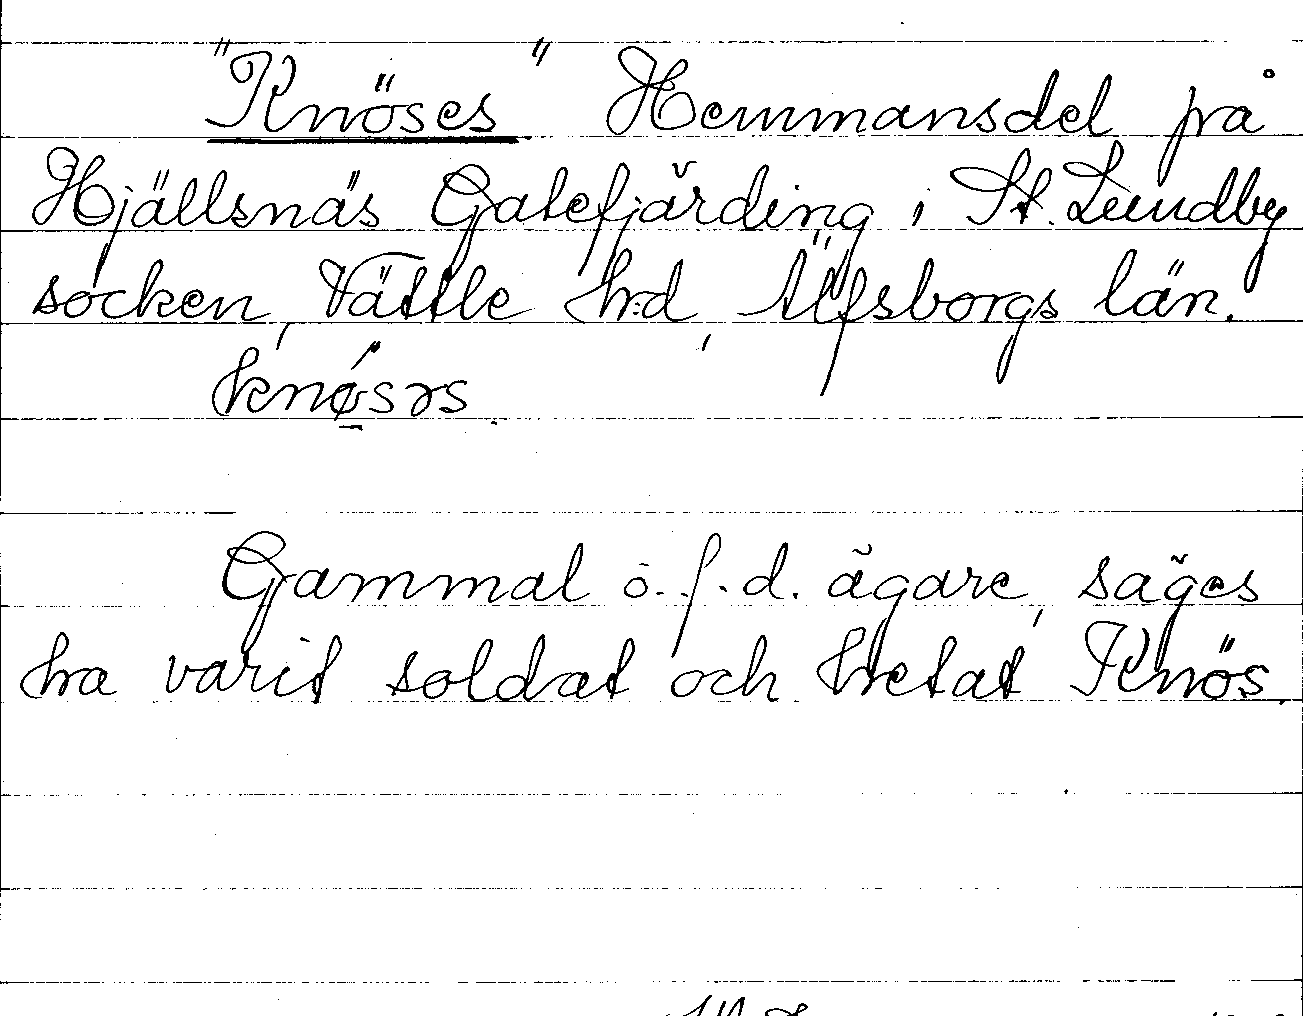 "Knöses" Hemmansdel på
Hjällsnäs Gatefjärding i St. Lundby
socken, Vättle hd, Älfsborgs län.
knø̀sɜs
Gammal o. f.d. ägare, säges
ha varit soldat och hetat Knös.